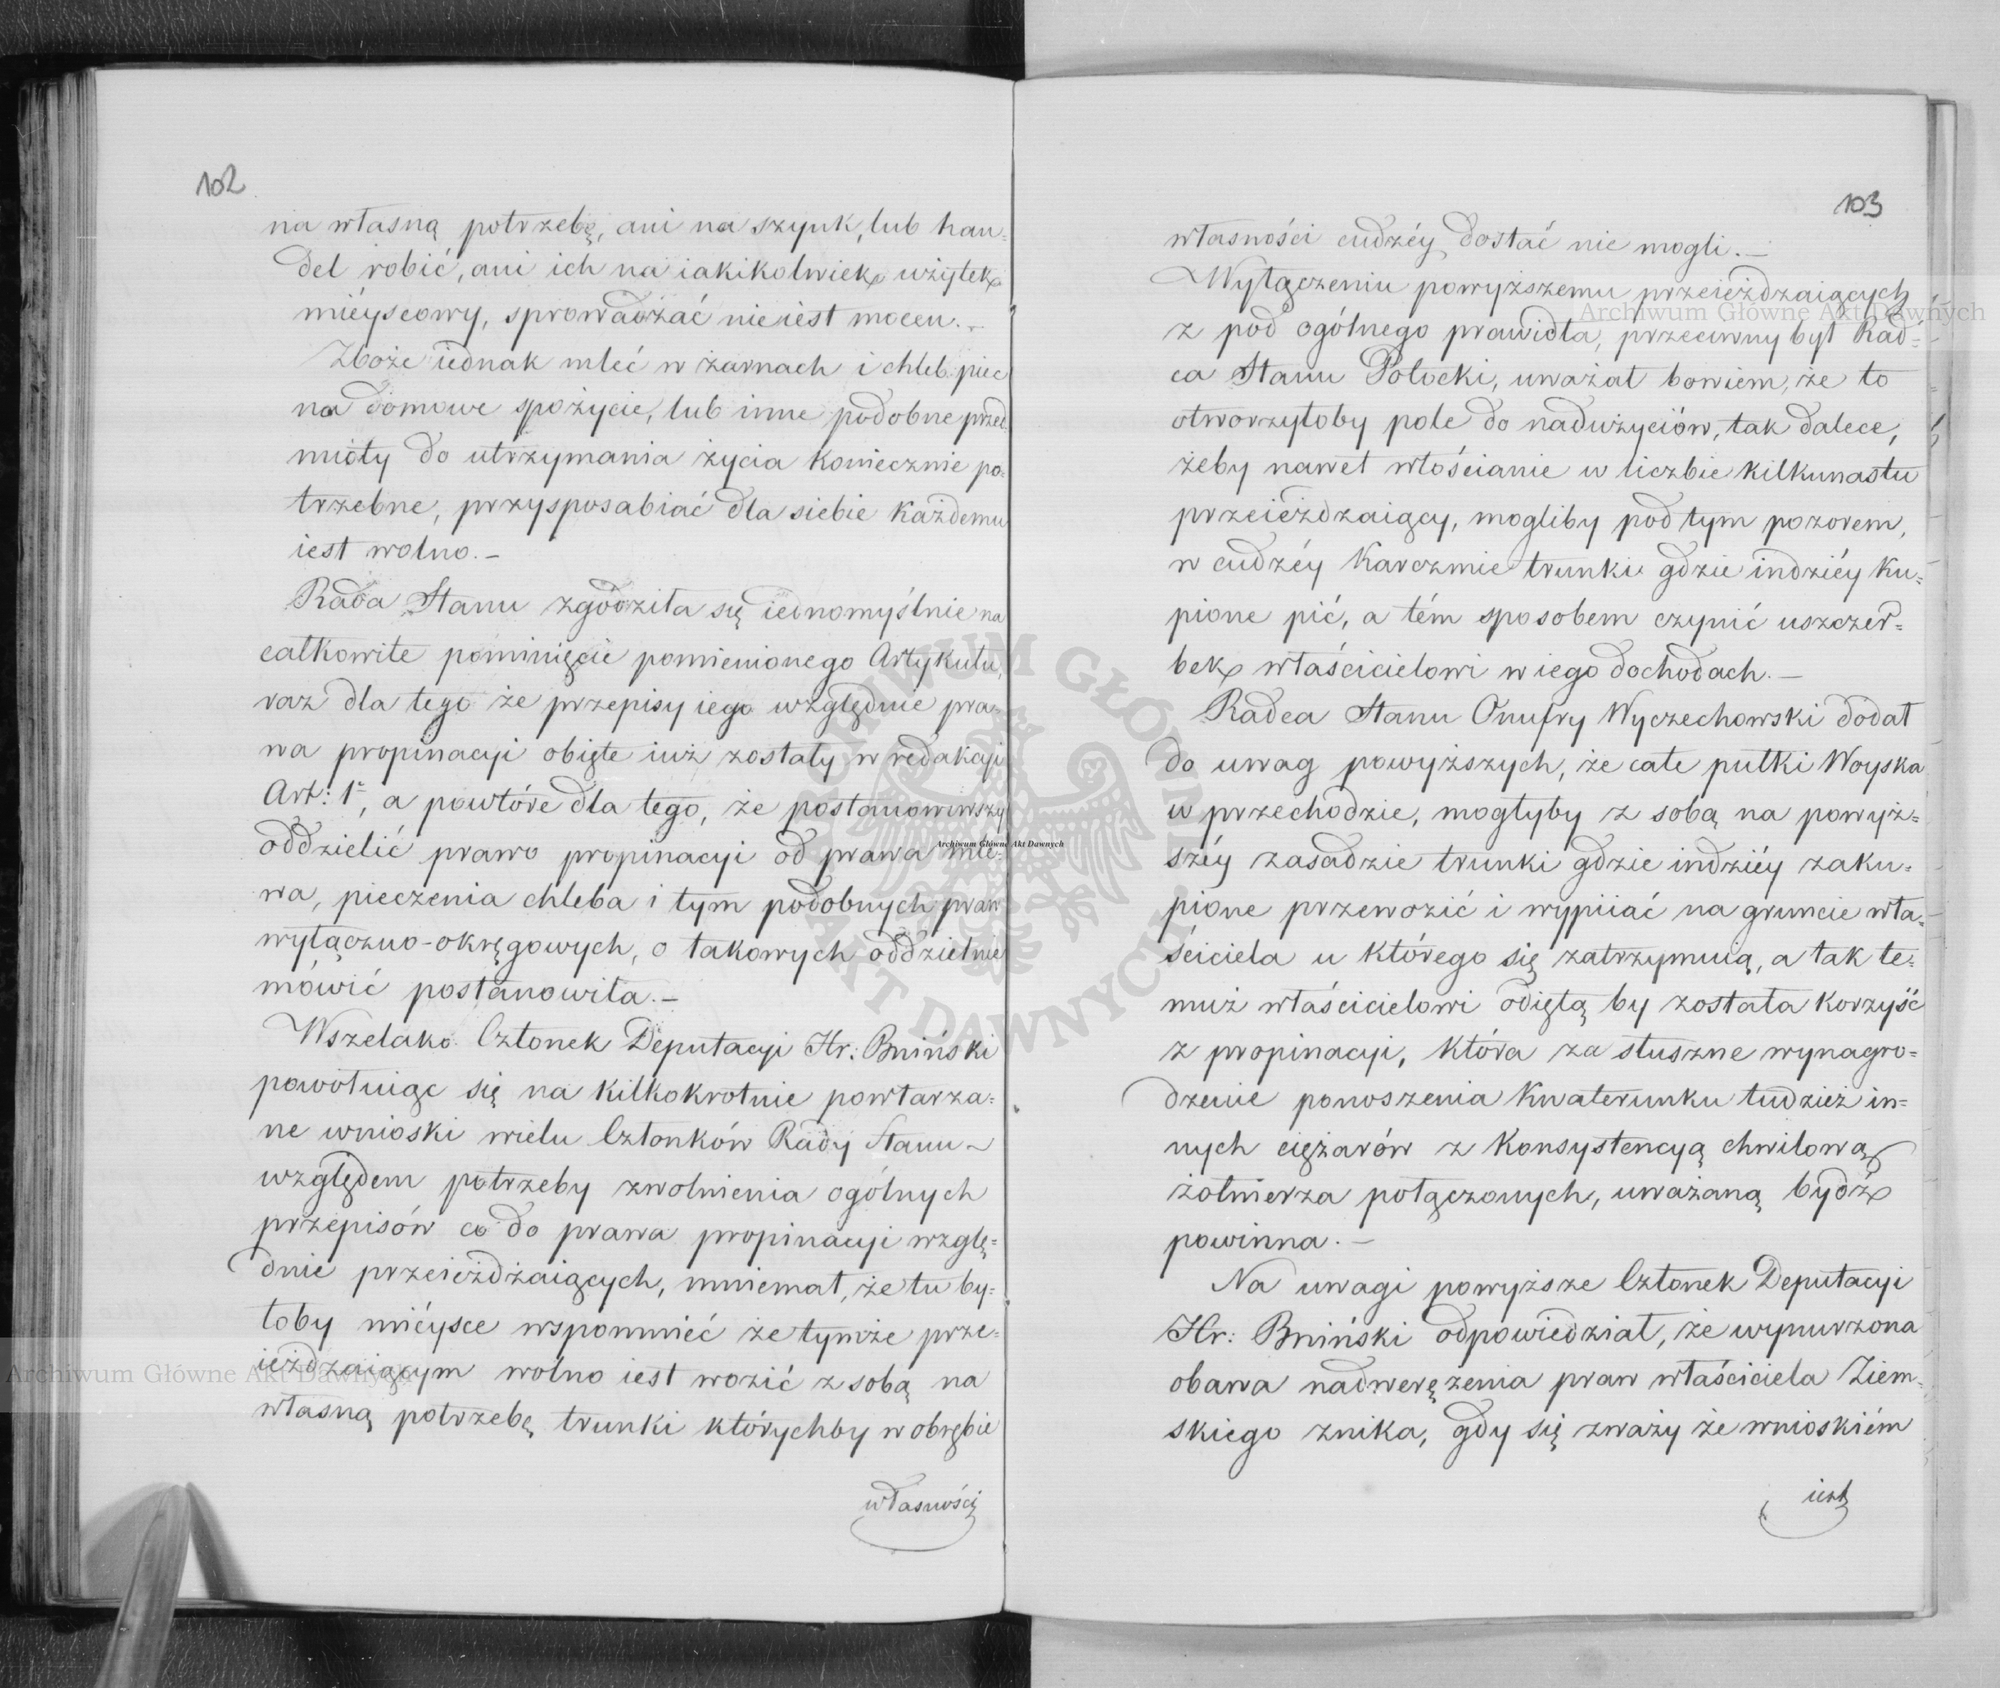 102
na własną potrzebę, ani na szynk, lub han-
del robić, ani ich na iakikolwiek użytek
mieyscowy, sprowadzać nie iest mocen. –
Zboże iednak mleć w żarnach i chleb piec
na domowe spożycie, lub inne podobne przed-
mioty do utrzymania życia koniecznie po-
trzebne, przysposabiać dla siebie każdemu
iest wolno. –
Rada Stanu zgodziła się iednomyślnie na
całkowite pominięcie pomienionego Artykułu,
raz dla tego że przepisy iego względnie pra-
wa propinacyi obięte iuż zostały w redakcyi
Art: 1º, a powtóre dla tego, że postanowiwszy
oddzielić prawo propinacyi od prawa mle-
wa, pieczenia chleba i tym podobnych praw
wyłączno-okręgowych, o takowych oddzielnie
mówić postanowiła. –
Wszelako Członek Deputacyi Hr: Bniński
powołuiąc się na kilkokrotnie powtarza-
ne wnioski wielu Członków Rady Stanu
względem potrzeby zwolnienia ogólnych
przepisów co do prawa propinacyi wzglę-
dnie przeieżdżaiących, mniemał, że tu by-
łoby mieysce wspomnieć że tymże prze-
ieżdzaiącym wolno iest wozić z sobą na
własną potrzebę trunki którychby w obrębie
własności
103
własności cudzéy dostać nie mogli. –
Wyłączeniu powyższemu przeieżdzaiących
z pod ogólnego prawidła, przeciwny był Rad-
ca Stanu Potocki, uważał bowiem, że to
otworzyłoby pole do nadużyciów, tak dalece,
żeby nawet włościanie w liczbie kilkunastu
przeieżdzaiący, mogliby pod tym pozorem,
w cudzéy karczmie trunki gdzie indziéy ku-
pione pić, a tém sposobem czynić uszczer-
bek właścicielowi w iego dochodach. –
Radca Stanu Onufry Wyczechowski dodał
do uwag powyższych, że całe pułki Woyska
w przechodzie, mogłyby z sobą na powyż-
széy zasadzie trunki gdzie indziéy zaku-
pione przewozić i wypiiać na gruncie wła-
ściciela u którego się zatrzymuią, a tak te-
muż właścicielowi odiętą by została korzyść
z propinacyi, która za słuszne wynagro-
dzenie ponoszenia kwaterunku tudzież in-
nych ciężarów z konsystencyą chwilową
żołnierza połączonych, uważaną bydź
powinna. –
Na uwagi powyższe Członek Deputacyi
Hr: Bniński odpowiedział, że wynurzona
obawa nadwerężenia praw właściciela Ziem-
skiego znika, gdy się zważy że wnioskiém
iest
Archiwum Główne Akt Dawnych
Archiwum Główne Akt Dawnych
Archiwum Główne Akt Dawnych
ARCHIWUM GŁÓWNE AKT DAWNYCH